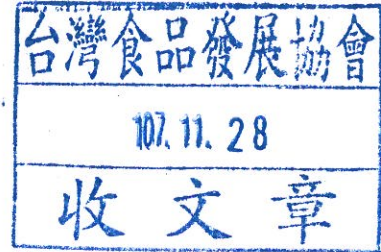 台灣食品發展協會
107. 11. 28
收文章